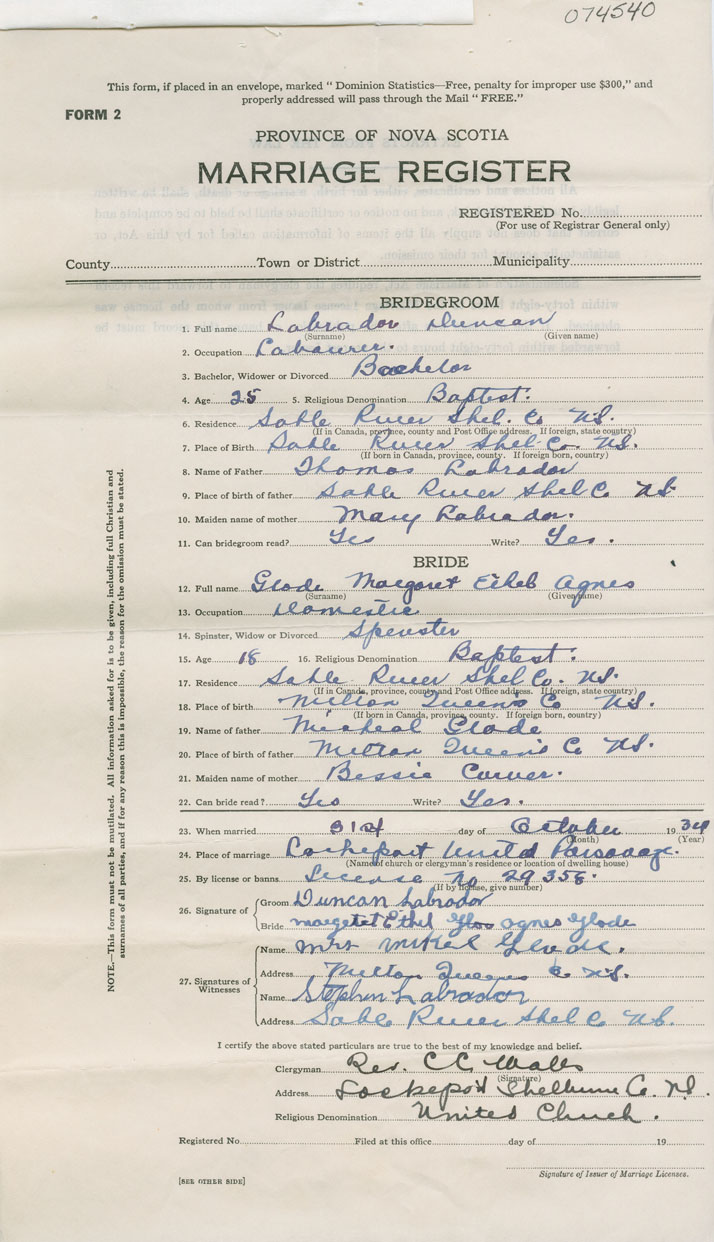 074540
This form, if placed in an envelope, marked " Dominion Statistics—Free, penalty for improper use $300," and
properly addressed will pass through the Mail " FREE."
FORM 2
PROVINCE OF NOVA SCOTIA
MARRIAGE REGISTER
REGISTERED No.
(For use of Registrar General only)
County Town or District Municipality
BRIDEGROOM
1. Full name Labrador Duncan
(Surname) (Given name)
2. Occupation Labourer.
3. Bachelor, Widower or Divorced Bachelor
4. Age 25 5. Religious Denomination Baptist.
6. Residence Sable River Shel. Co N.S.
(If in Canada, province, county and Post Office address. If foreign, state country)
7. Place of Birth Sable River Shel. Co. N.S.
(If born in Canada, province, county. If foreign born, country)
8. Name of Father Thomas Labrador
9. Place of birth of father Sable River Shel Co N.S
10. Maiden name of mother Mary Labrador.
11. Can bridegroom read? Yes Write? Yes.
BRIDE
12. Full name Glode Margaret Ethel Agnes
(Surname) (Given name)
13. Occupation Domestic
14. Spinster, Widow or Divorced Spenster
15. Age 18 16. Religious Denomination Baptist.
17. Residence Sable River Shel Co. N.S.
(If in Canada, province, county and Post Office address. If foreign, state country)
18. Place of birth Milton Queens Co N.S.
(If born in Canada, province, county. If foreign born, country)
19. Name of father Micheal Glode
20. Place of birth of father Milton Queens Co N.S.
21. Maiden name of mother Bessie
22. Can bride read? Yes Write? Yes.
23. When married 31st day of October 1934
(Month) (Year)
24. Place of marriage Lockeport United Parsonage.
(Name of church or clergyman's residence or location of dwelling house)
25. By license or banns License No 29358.
(If by license, give number)
26. Signature of
Groom Duncan Labrador
Bride Margetet Ethel Agnes Glode
27. Signatures of Witnesses
Name Mrs Mikel Glode.
Address Milton Queens Co N.S.
Name Stephen Labrador
Address Sable River Shel Co N.S.
I certify the above stated particulars are true to the best of my knowledge and belief.
Clergyman Rev. C C Walls
(Signature)
Address Lockeport Shelburne Co. N.S.
Religious Denomination United Church.
Registered No. Filed at this office day of 19
Signature of Issuer of Marriage Licenses.
[SEE OTHER SIDE]
NOTE.—This form must not be mutilated. All information asked for is to be given, including full Christian and
surnames of all parties, and if for any reason this is impossible, the reason for the omission must be stated.